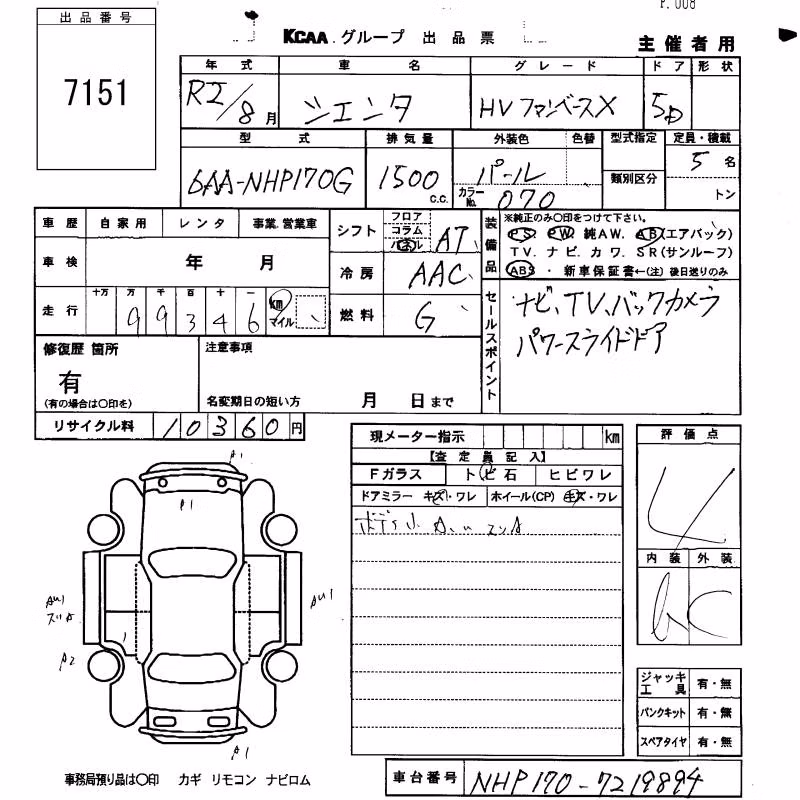 P. 008
出品番号
7151
KCAA.グループ 出品票
主催者用
年式 車名 グレード ドア 形状
R2/8月 シエンタ HVファンベースX 5D
型式 排気量 外装色 色替 型式指定 定員・積載
6AA-NHP170G 1500 c.c. パール カラーNo. 070 類別区分 5名 トン
車歴 自家用 レンタ 事業.営業車
シフト フロア コラム パネル AT
装備品 ※純正のみ○印をつけて下さい。
PS. PW. 純AW. AB(エアバック)
TV. ナビ. カワ. SR(サンルーフ)
ABS・新車保証書←(注)後日送りのみ
車検 年 月
冷房 AAC
走行 十万 万 千 百 十 一
99346 km マイル
燃料 G
セールスポイント
ナビ、TV、バックカメラ
パワースライドドア
修復歴 箇所
有
(有の場合は○印を)
注意事項
名変期日の短い方 月 日まで
リサイクル料 10360円
現メーター指示 km
【査定員記入】
Fガラス トビ石 ヒビワレ
ドアミラー キズ・ワレ ホイール(CP) キズ・ワレ
ボデ小
評価点
4
内装 外装
b C
A1
P1
AU1
AU1
A2
A1
ジャッキ工具 有・無
パンクキット 有・無
スペアタイヤ 有・無
事務局預り品は○印 カギ リモコン ナビロム
車台番号 NHP170-7219894